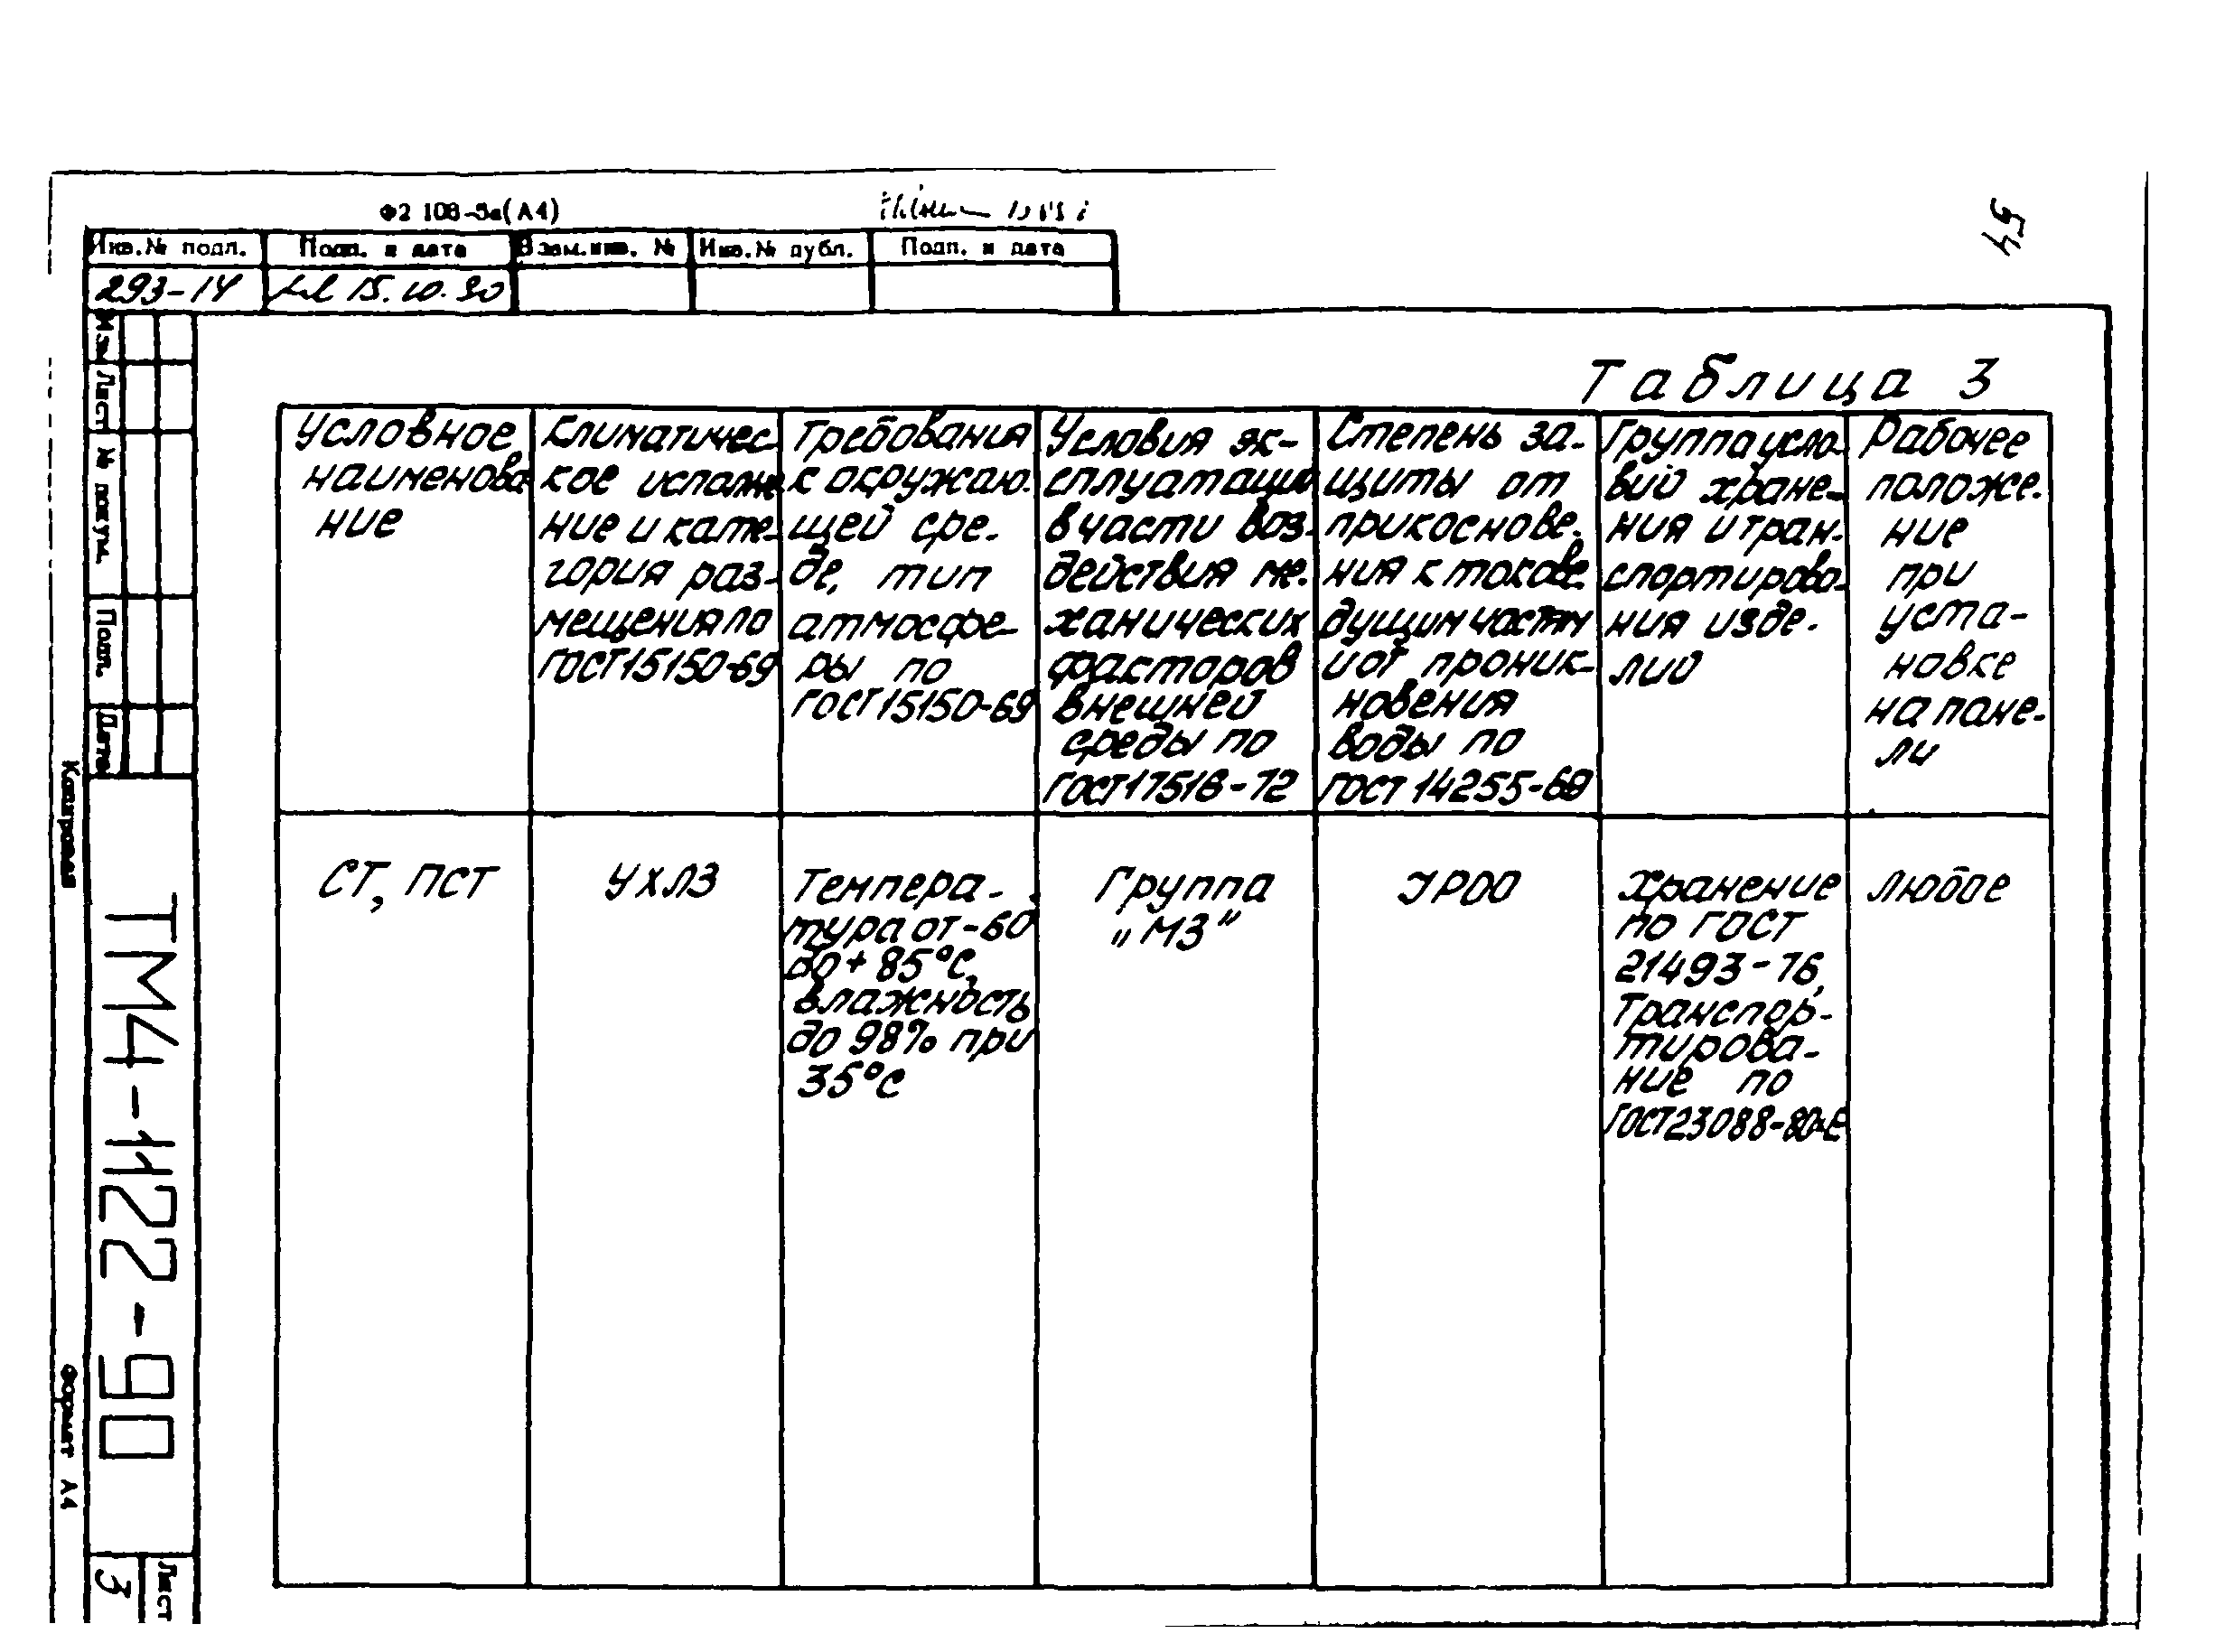 Ф2 108-5а(А4)
54
Инв.№ подл. Подп. и дата Взам.инв. № Инв.№ дубл. Подп. и дата
293-14 15.10.90
Изм Лист № докум. Подп. Дата
Копировал
ТМ4-1122-90
Формат А4
Лист
3
Таблица 3
Условное
наименова
ние
Климатичес-
кое исполне
ние и кате-
гория раз-
мещения по
ГОСТ15150-69
Требования
к окружаю-
щей сре-
де, тип
атмосфе-
ры по
ГОСТ15150-69
Условия эк-
сплуатации
в части воз-
действия ме-
ханических
факторов
внешней
среды по
ГОСТ17516-72
Степень за-
щиты от
прикоснове-
ния к токове-
дущим частям
и от проник-
новения
воды по
ГОСТ 14255-69
Группа усло-
вий хране-
ния и тран-
спортирова-
ния изде-
лий
Рабочее
положе-
ние
при
уста-
новке
на пане-
ли
СТ, ПСТ
УХЛ3
Темпера-
тура от -60
до + 85°С,
влажность
до 98% при
35°С
Группа
„М3"
УР00
Хранение
по ГОСТ
21493-76,
Транспор-
тирова-
ние по
ГОСТ23088-80Е
любое